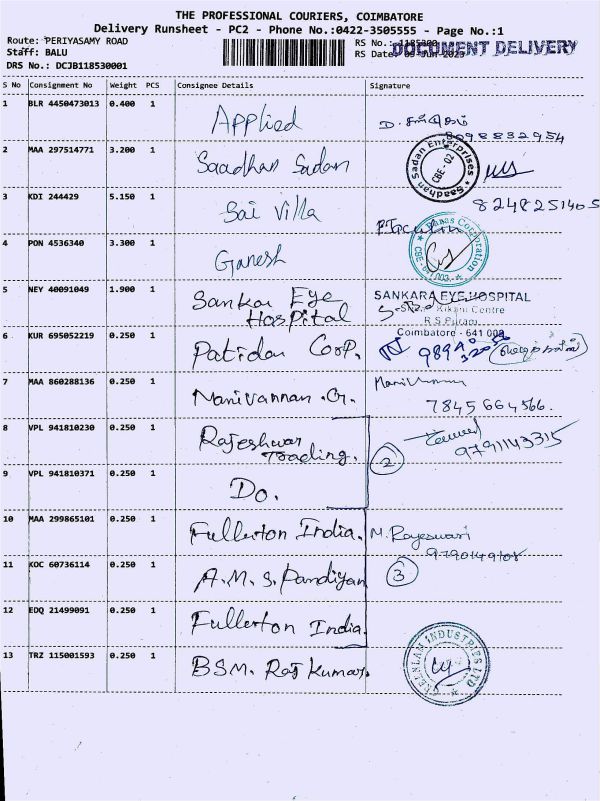 THE PROFESSIONAL COURIERS, COIMBATORE
Delivery Runsheet - PC2 - Phone No.:0422-3505555 - Page No.:1
Route: PERIYASAMY ROAD
Staff: BALU
DRS No.: DCJB118530001
RS No.:
RS Date:
DOCUMENT DELIVERY
S No Consignment No Weight PCS Consignee Details Signature
1 BLR 4450473013 0.400 1 Applied
8098832954
2 MAA 297514771 3.200 1 Saadhan Sadan
Saadhan Sadan Enterprises
CBE-02
3 KDI 244429 5.150 1 Sai Villa
8248251405
4 PON 4536340 3.300 1 Ganesh
Corporation
5 NEY 40091049 1.900 1 Sankar Eye Hospital
SANKARA EYE HOSPITAL
Centre
R.S.Puram
Coimbatore - 641 002
6 KUR 695052219 0.250 1 Patidar Corp.
7 MAA 860288136 0.250 1 Manivannan .G.
Manivannan
7845664566.
8 VPL 941810230 0.250 1 Rajeshwar Trading.
9791143315
2
9 VPL 941810371 0.250 1 Do.
10 MAA 299865101 0.250 1 Fullerton India.
M. Rajeswari
9790149108
11 KOC 60736114 0.250 1 A.M.S. Pandiyan
3
12 EDQ 21499091 0.250 1 Fullerton India.
13 TRZ 115001593 0.250 1 BSM. Raj Kumar.
INDUSTRIES LTD